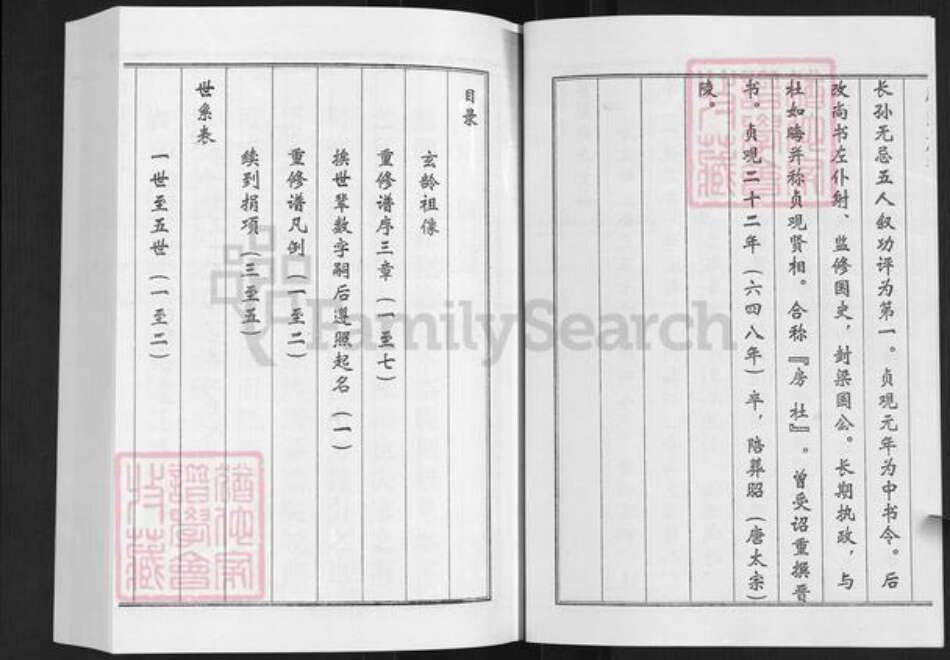 长孙无忌五人叙功评为第一。贞观元年为中书令。后
改尚书左仆射、监修国史，封梁国公。长期执政，与
杜如晦并称贞观贤相。合称『房 杜』。曾受诏重撰晋
书。贞观二十二年（六四八年）卒，陪葬昭（唐太宗）
陵。
目录
玄龄祖像
重修谱序三章（一至七）
挨世辈数字嗣后遵照起名（一）
重修谱凡例（一至二）
续到捐项（三至五）
世系表
一世至五世（一至二）
FamilySearch